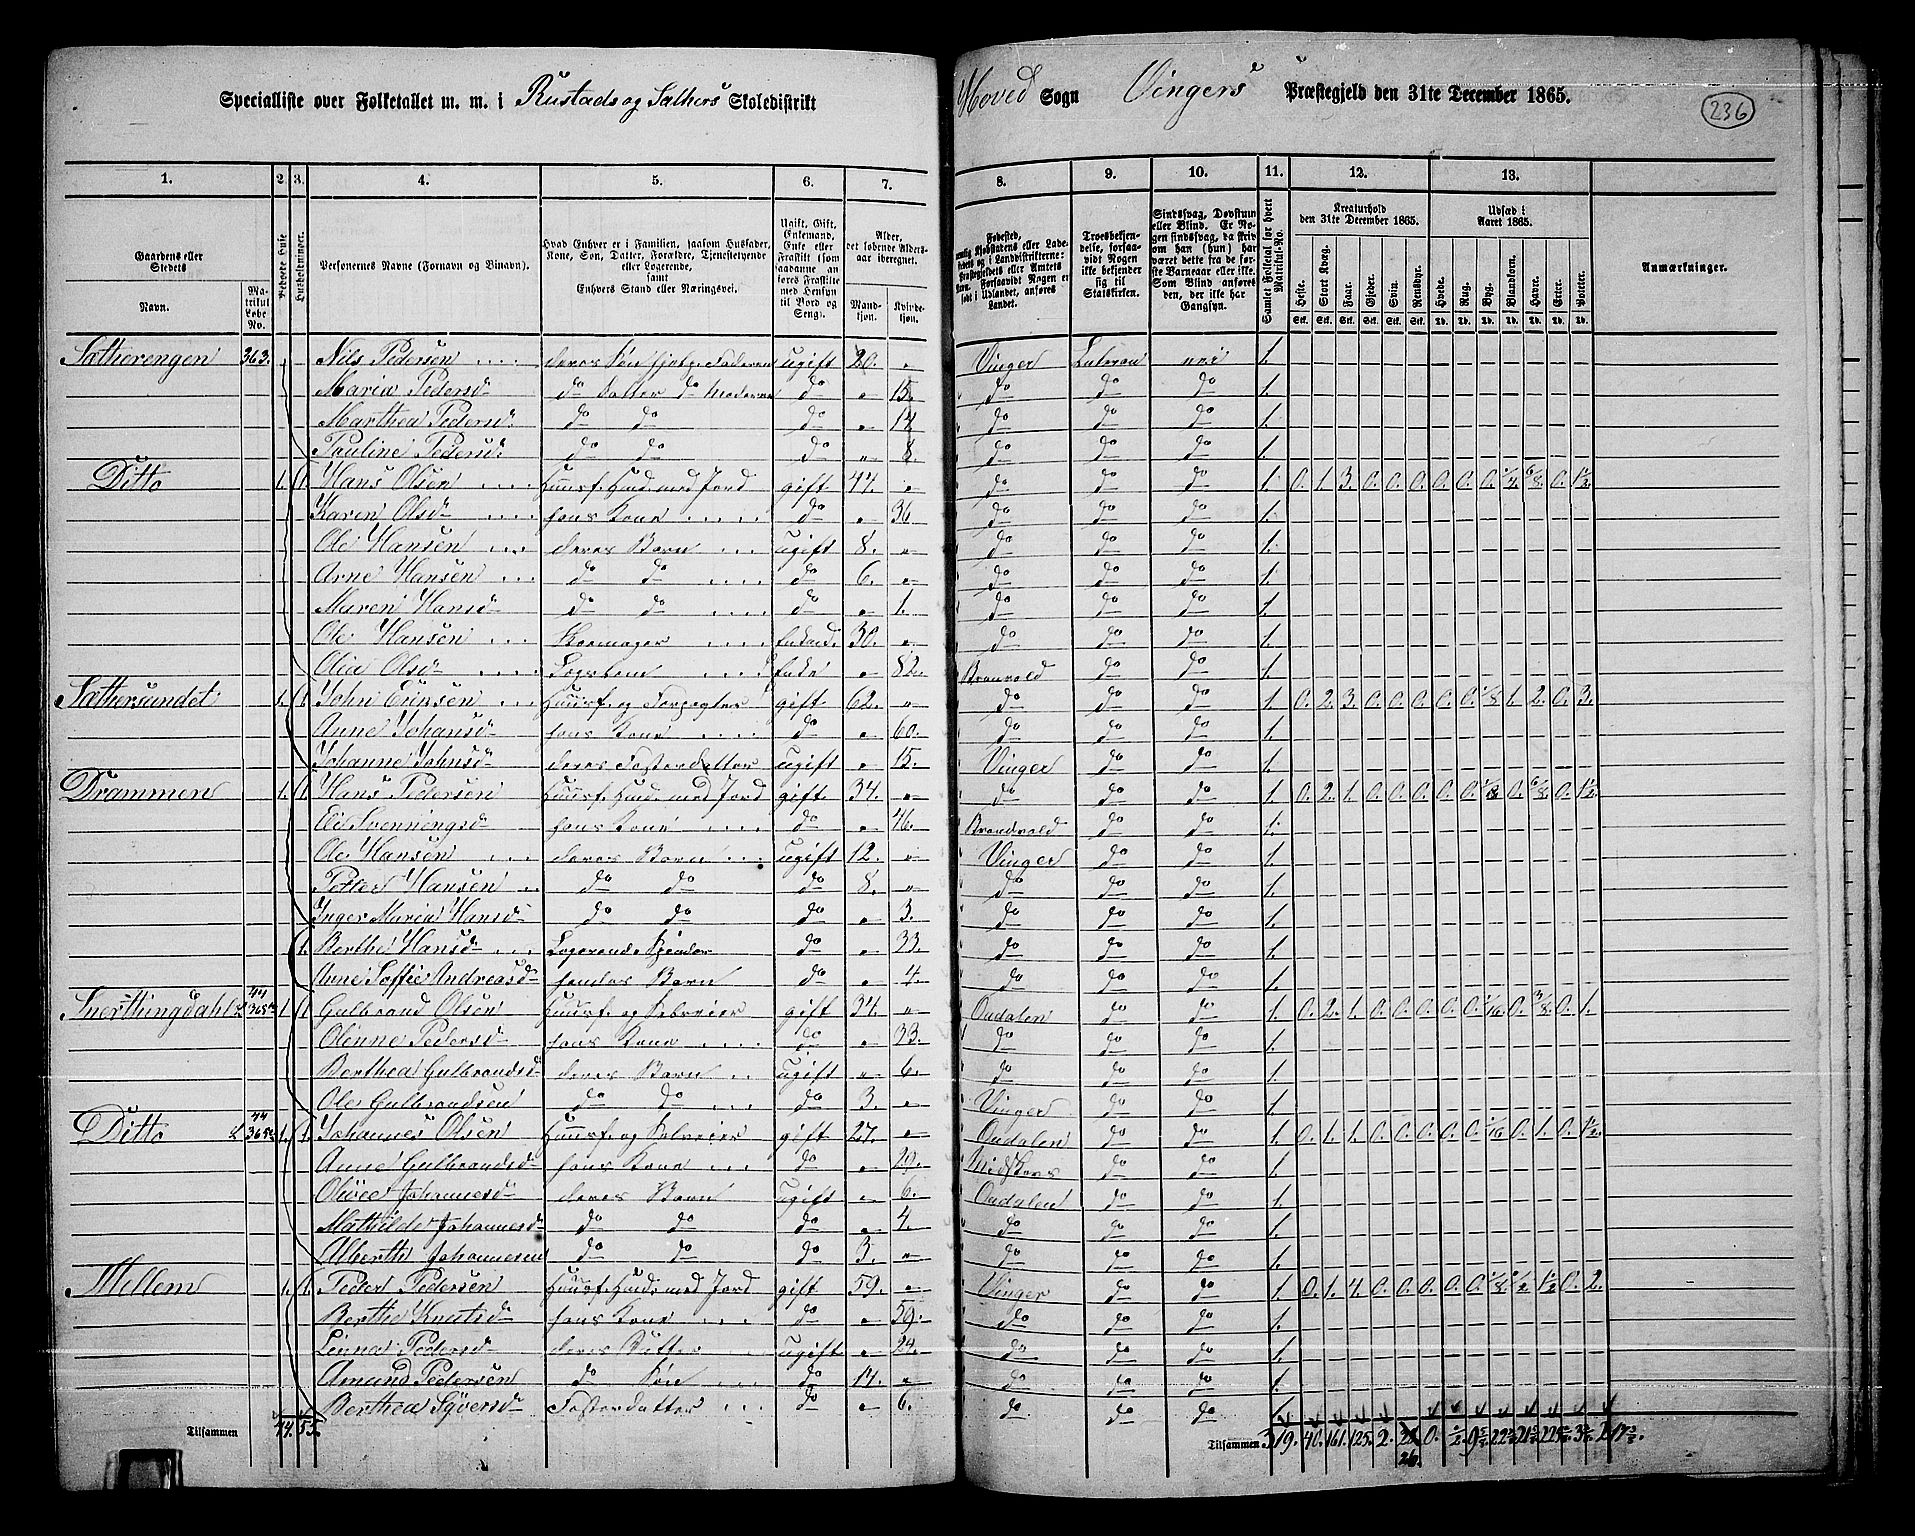 Specialliste over Folketallet m. m. i Rustads og Sæthers Skoledistrikt
Hoved Sogn Vingers Præstegjeld den 31te December 1865.
236
1. 2. 3. 4. 5. 6. 7. 8. 9. 10. 11. 12. 13.
Gaardens eller Stedets
Navn.
Matrikul Løbe No.
Beboede Huse
Husholdninger.
Personernes Navne (Fornavn og Binavn).
Hvad Enhver er i Familien, saasom Husfader, Kone, Søn, Datter, Forældre, Tjenestetyende eller Logerende, samt Enhvers Stand eller Næringsvei.
Ugift, Gift, Enkemand, Enke eller Fraskilt
Alder, det løbende Aldersaar iberegnet.
Mandkjøn. Kvindekjøn.
Fødested,
Troesbekjendelse, forsaavidt Nogen ikke bekjender sig til Statskirken.
Sindssvag, Døvstum eller Blind. Er Nogen sindssvag, da skriv om han (hun) har været dette fra de første Barneaar eller ikke. Som Blind anføres den, der ikke har Gangsyn.
Samlet Folketal for hvert Matrikul-No.
Kreaturhold den 31te December 1865.
Heste. Stort Kvæg. Faar. Gjeder. Svin. Rensdyr.
Udsæd i Aaret 1865.
Hvede. Rug. Byg. Blandkorn. Havre. Erter. Poteter.
Anmærkninger.
Sætherengen 363. Nils Pedersen deres Søn ugift 20. Vinger Luteran nei 1.
Maria Pedersd do Datter do Moderen do 15. do do do 1.
Marthea Pedersd do do do do do do 1.
Pauline Pedersd do do do 8. do do do 1.
Ditto 1. 1. Hans Olsen Huusf. Husm. med Jord gift 44. do do do 1. 0. 1. 3. 0. 0. 0. 0. 0. 0. 1/4. 6/8. 0. 1 1/2.
Karen Olsd hans Kone do 36 do do do 1.
Ole Hansen deres Barn ugift 8. do do do 1.
Arne Hansen do do do 6. do do do 1.
Maren Hansd do do do 1. do do do 1.
Ole Hansen Skomager Enkemd. 30. do do do 1.
Olea Olsd Enke 82. Brandvold do do 1.
Sæthersundet 1. 1. John Ericksen Huusf. og Forpagter gift 62. do do do 1. 0. 2. 3. 0. 0. 0. 0. 0. 1/8 1. 2. 0. 3.
Anne Johansd hans Kone do 60. do do do 1.
Johanne Johnsd deres Fosterdatter ugift 15. Vinger do do 1.
Drammen 1. 1. Hans Pedersen Huusf. Husm. med Jord gift 34. do do do 1. 0. 2. 1. 0. 0. 0. 0. 0. 1/8 0. 6/8. 0. 1 1/2.
Eli Svenningsd hans Kone do 46. Brandvold do do 1.
Ole Hansen deres Barn ugift 12. Vinger do do 1.
Petter Hansen do do do 8. do do do 1.
Inger Maria Hansd do do do 3. do do do 1.
1. Berthe Hansd Logerende do 33. do do do 1.
Anne Soffie Andreasd hendes Barn do 4. do do do 1.
Snerthingdahl 44 365 1. 1. Gulbrand Olsen Huusf. og Selveier gift 34. Oudalen do do 1. 0. 2. 1. 0. 0. 0. 0. 0. 1/16 0. 3/8. 0. 1.
Olenne Pedersd hans Kone do 33. do do do 1.
Berthea Gulbrandsd deres Barn ugift 6. do do do 1.
Ole Gulbrandsen do do do 3. Vinger do do 1.
Ditto 44 365 1. 1. Johannes Olsen Huusf. og Selveier gift 27. Oudalen do do 1. 0. 1. 1. 0. 0. 0. 0. 0. 1/16 0. 1. 0. 1 1/2.
Anne Gulbrandsd hans Kone do 29. do do 1.
Johannesd deres Barn ugift 6. Oudalen do do 1.
Mathilde Johannesd do do do 4. do do do 1.
Alberth Johannesen do do do 3. do do do 1.
Mellem 1. 1. Peder Pedersen Huusf. Husm. med Jord gift 59. Vinger do do 1. 0. 1. 4. 0. 0. 0. 0. 0. 1/8. 1/2. 1 1/2 0. 2.
Berthe Knutsd hans Kone do 59. do do do 1.
Linna Pedersd deres Datter ugift 29. do do do 1.
Amund Pedersen do Søn do 14. do do do 1.
Berthea Syversd Fosterdatter do 6. do do do 1.
Tilsammen 44. 55.
Tilsammen 319. 40. 161. 125. 2. 26. 0.